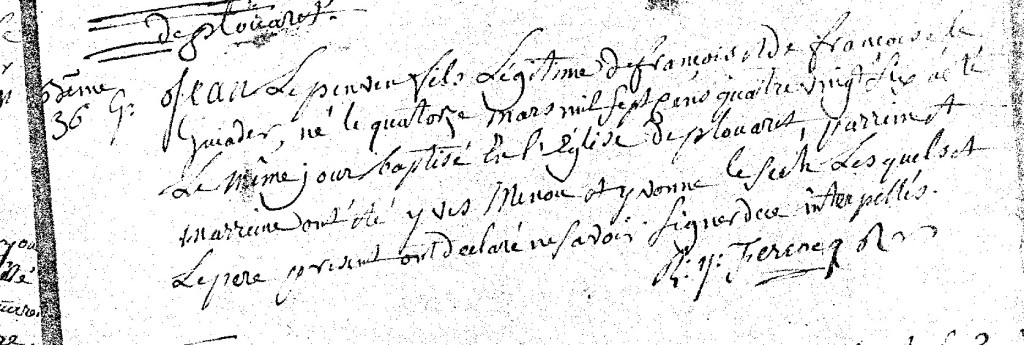 de ploüaret.
36 G:
Jean Lepenven fils Légitime de françois et de françoise le
Guiader, né le quatorze mars mil sept cens quatre vingt six a été
Le même jour baptisé En l'Église de plouaret, parrein et
marreine ont été yves Menou et yvonne le
Lesquels et
Le pere present ont declaré ne savoir signer de ce interpellés.